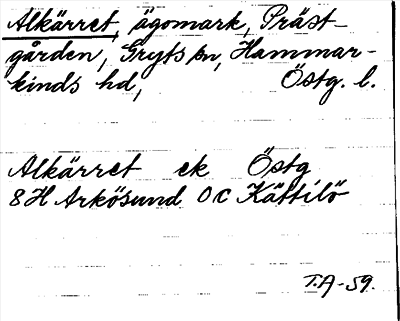 Alkärret, ägomark, Präst-
gården, Gryts sn, Hammar-
kinds hd, Östg. l.
Alkärret ek Östg
8H Arkösund 0c Kättilö
T.A-59.